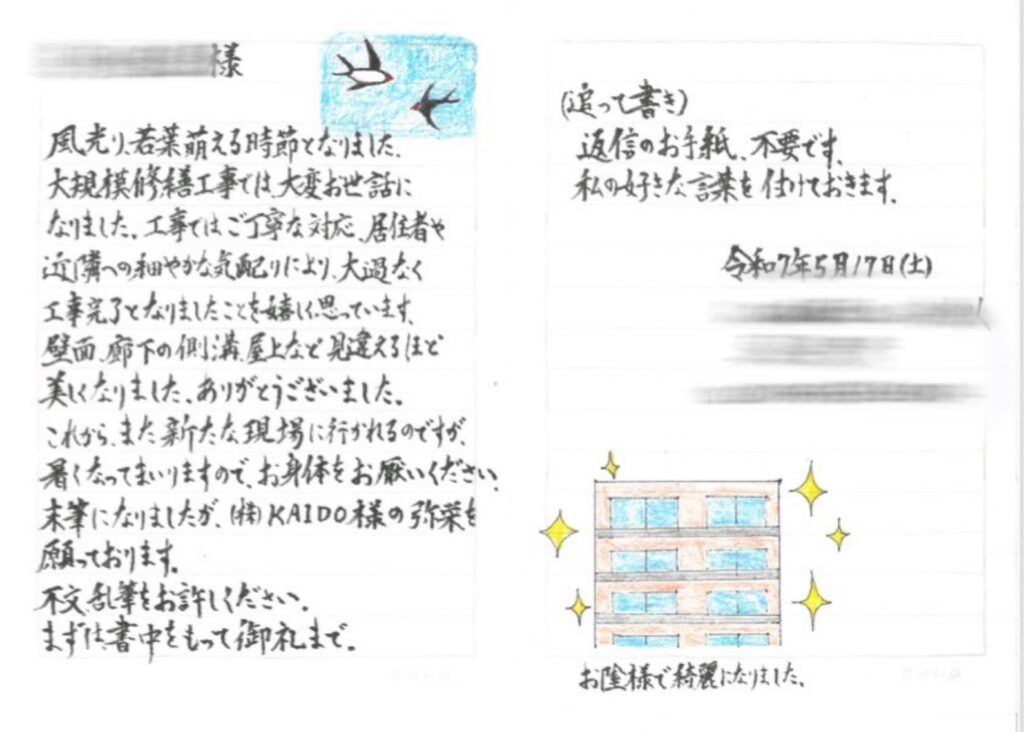 様
風光り、若葉萌える時節となりました。
大規模修繕工事では、大変お世話に
なりました。工事ではご丁寧な対応、居住者や
近隣への細やかな気配りにより、大過なく
工事完了となりましたことを嬉しく思っています。
壁面、廊下の側溝、屋上など見違えるほど
美しくなりました。ありがとうございました。
これから、また新たな現場に行かれるのですが、
暑くなってまいりますので、お身体をお厭いください。
末筆になりましたが、(株)KAIDO様の弥栄を
願っております。
不文、乱筆をお許しください。
まずは、書中をもって御礼まで。
(追って書き)
返信のお手紙、不要です。
私の好きな言葉を付けておきます。
令和7年5月17日(土)
お陰様で綺麗になりました。